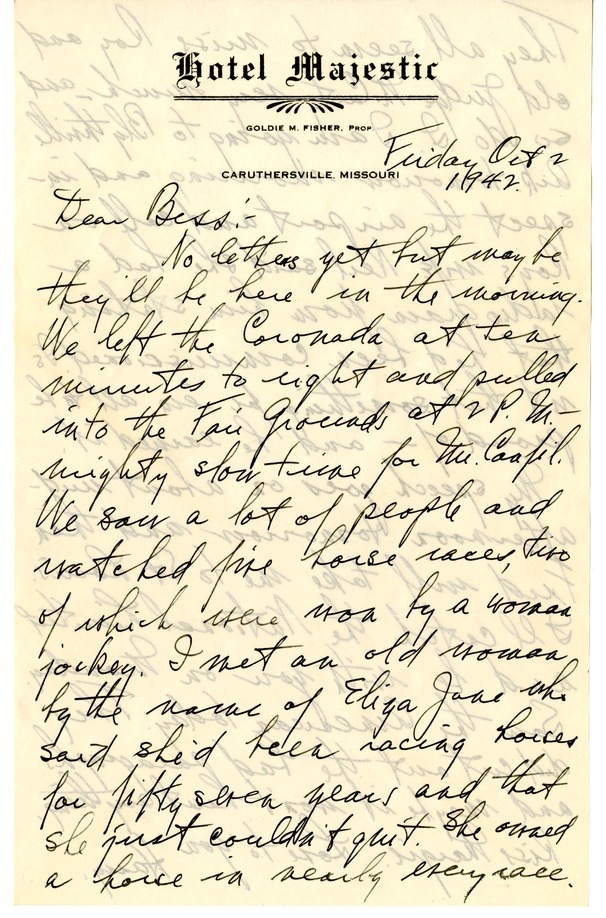 Hotel Majestic
GOLDIE M. FISHER, PROP.
CARUTHERSVILLE, MISSOURI
Friday Oct 2
1942.
Dear Bess:-
No letters yet but maybe
they'll be here in the morning.
We left the Coronada at ten
minutes to eight and pulled
into the Fair Grounds at 2 P.M-
mighty slow time for Mr. Canfil.
We saw a lot of people and
watched five horse races, two
of which were won by a woman
jockey. I met an old woman
by the name of Eliza Jane who
said she'd been racing horses
for fifty seven years and that
she just couldn't quit. She owned
a horse in nearly every race.